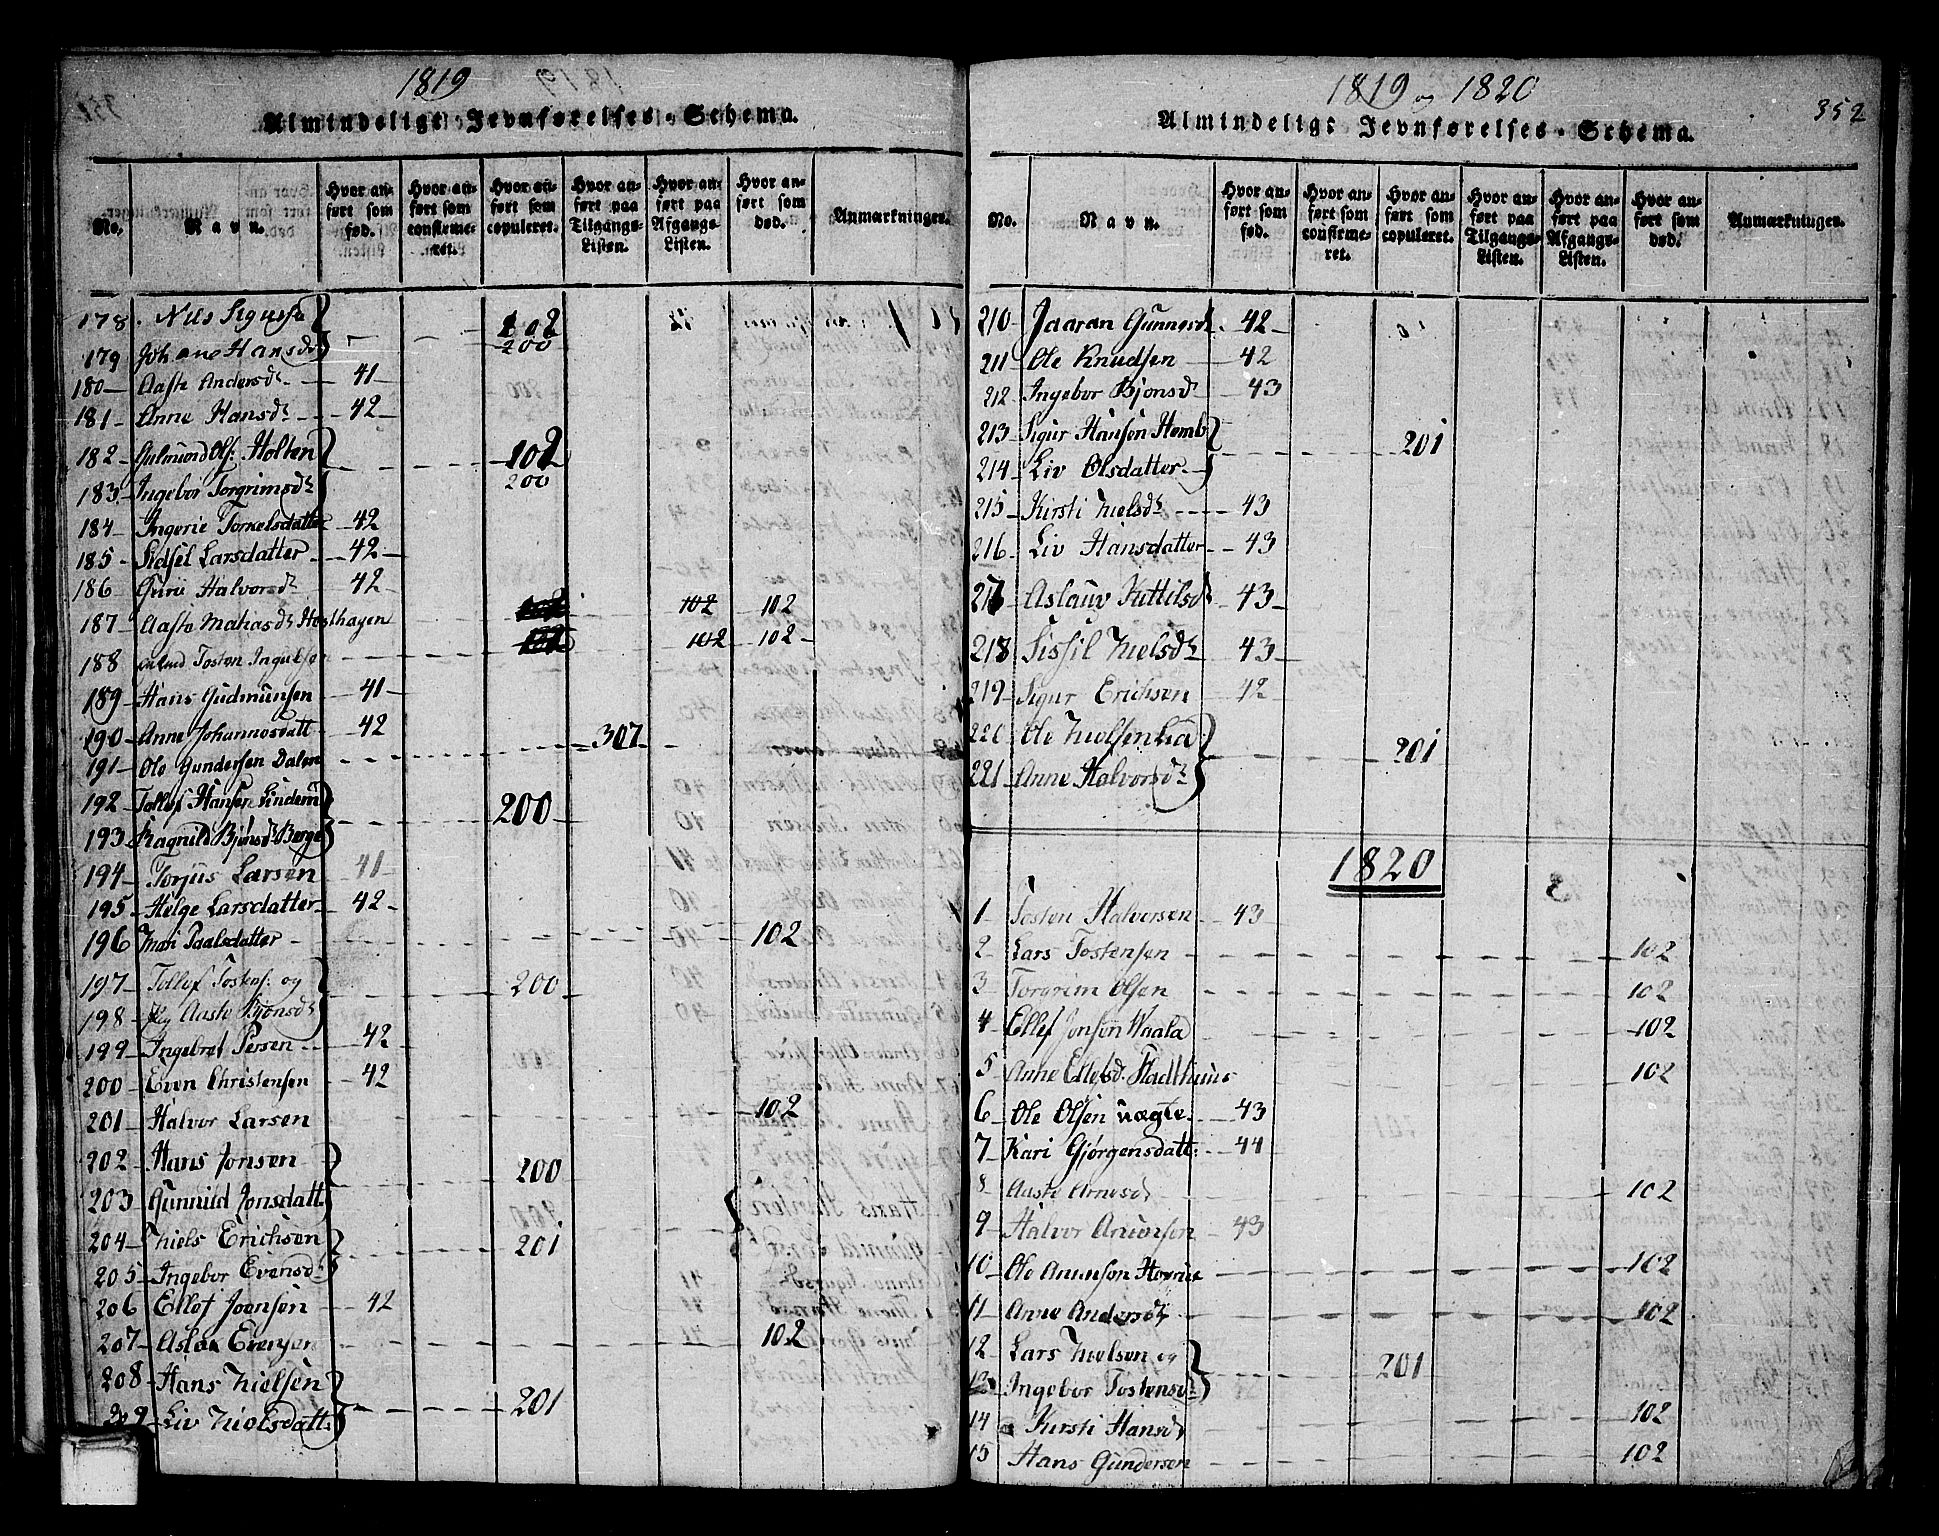 1819
Almindeligt Jevnførelses-Schema.
No. Navn. Hvor anført som fød. Hvor anført som confirmeret. Hvor anført som copuleret. Hvor anført paa Tilgangs-Listen. Hvor anført paa Afgangs-Listen. Hvor anført som død. Anmærkninger.
178. Nils 202
179 Johane Hansd 200
180 Aaste Andersdr 41
181 Anne Hansdr 42
182 Gulmund Ols: Holten 102
183 Ingebor Torgrimsdr 200
184 Ingerie Torkelsdatter 42
185 Sidsel Larsdatter 42
186 Gurii Halvorsdr 42
187 Aaste Matiasdr Hosthagen 102 102
188 Tosten Ingulsen 102 102
189 Hans Gudmunsen 41
190 Anne Johannosdatt 42
191 Ole Gundersen Dalen 307
192 Tollef Hansen Lindem
193 Ragnild Bjønsdr Berge 200
194 Torjus Larsen 41
195 Helge Larsdatter 42
196 Mari Paalsdatter 102
197 Tollef Tostens: og 200
198 Aaste Bjonsdr
199 Ingebret Persen 42
200 Even Christensen 42
201 Halvor Larsen 102
202 Hans Jonsen 200
203 Gunnild Jonsdatt
204 Niels Erichsen 201
205 Ingebor Evensdr
206 Ellef Joensen 42
207 Aslak Evensen 102
208 Hans Nielsen
209 Liv Nielsdatt 201
1819 og 1820
352
Almindeligt Jevnførelses-Schema.
No. Navn. Hvor anført som fød. Hvor anført som confirmeret. Hvor anført som copuleret. Hvor anført paa Tilgangs-Listen. Hvor anført paa Afgangs-Listen. Hvor anført som død. Anmærkninger.
210 Jaaran Gunnersd 42
211 Ole Knudsen 42
212 Ingebor Bjonsdr 43
213 Sigur Hansen Hemb 201
214 Liv Olsdatter
215 Kirsti Nielsdr 43
216 Liv Hansdatter 43
217 Aslaug Kittilsdr 43
218 Sissil Nielsdr 43
219 Sigur Erichsen 42
220 Ole Nielsen Lia
221 Anne Halvorsdr 201
1820
1 Tosten Halvorsen 43
2 Lars Tostensen 102
3 Torgrim Olsen 102
4 Ellef Jonson Waala 102
5 Anne Ellefsd. Stadthuus 102
6 Ole Olsen vægte 43
7 Kari Gjørgensdatt: 44
8 Aaste Arnesd 102
9 Halvor Arunsen 43
10 Ole Arunson 102
11 Anne Andersdr 102
12 Lars Nielsen og 201
13 Ingebor Tostensdr
14 Kirsti Hansd 102
15 Hans Gundersen 102